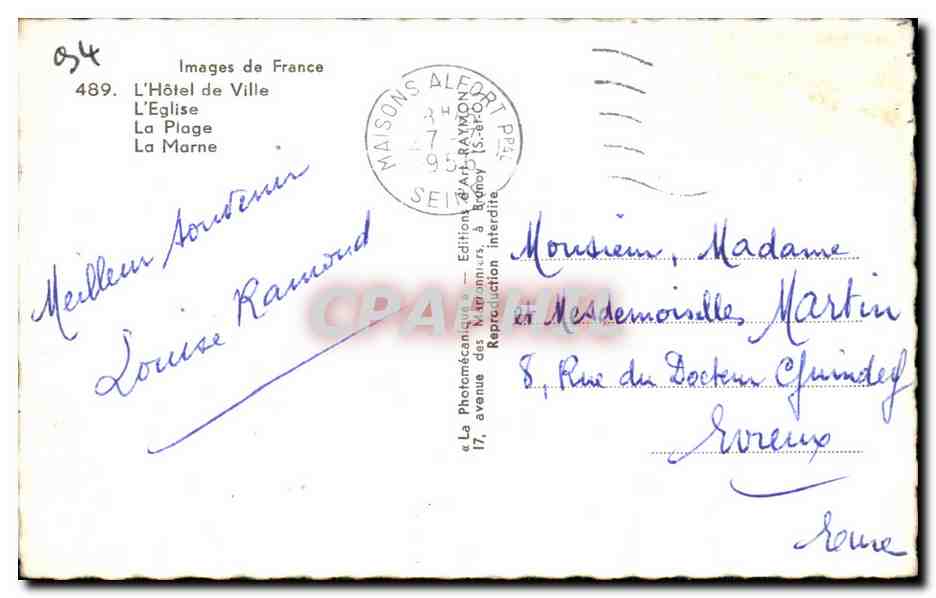 94
Images de France
489. L'Hôtel de Ville
L'Eglise
La Plage
La Marne
MAISONS ALFORT PPAL
7
SEINE
Meilleur souvenir
Louise Ramond
« La Photomécanique » — Editions d'Art RAYMON
17, avenue des Marronniers, à Brunoy (S.-et-O.)
Reproduction interdite
Monsieur, Madame
et Mesdemoiselles Martin
8, Rue du Docteur
Evreux
Eure